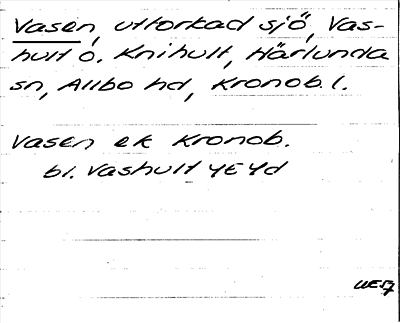 Vasen, uttorkad sjö, Vas-
hult o. Knihult, Härlunda
sn, Allbo hd, Kronob. l.
Vasen ek Kronob.
bl. Vashult 4E4d